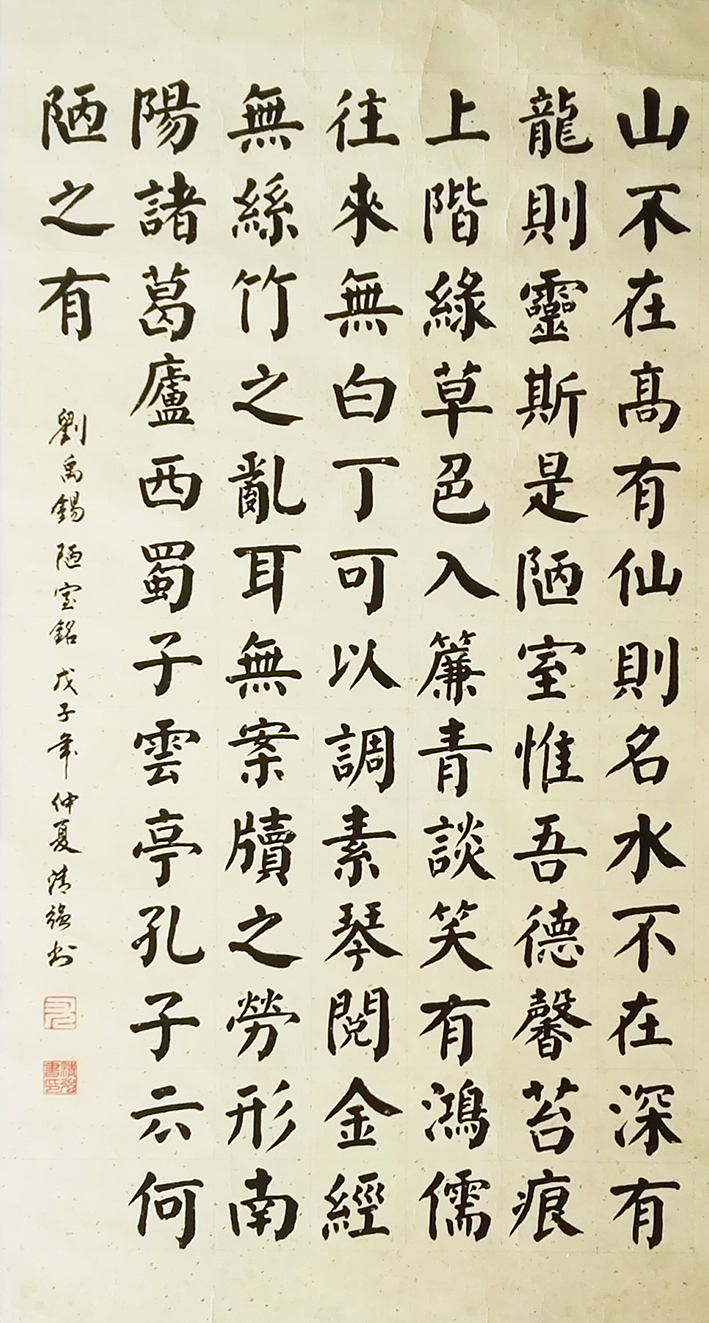 山不在高有仙則名水不在深有
龍則靈斯是陋室惟吾德馨苔痕
上階緑草色入簾青談笑有鴻儒
往來無白丁可以調素琴閱金經
無絲竹之亂耳無案牘之勞形南
陽諸葛廬西蜀子雲亭孔子云何
陋之有
劉禹錫陋室銘戊子年仲夏清強書